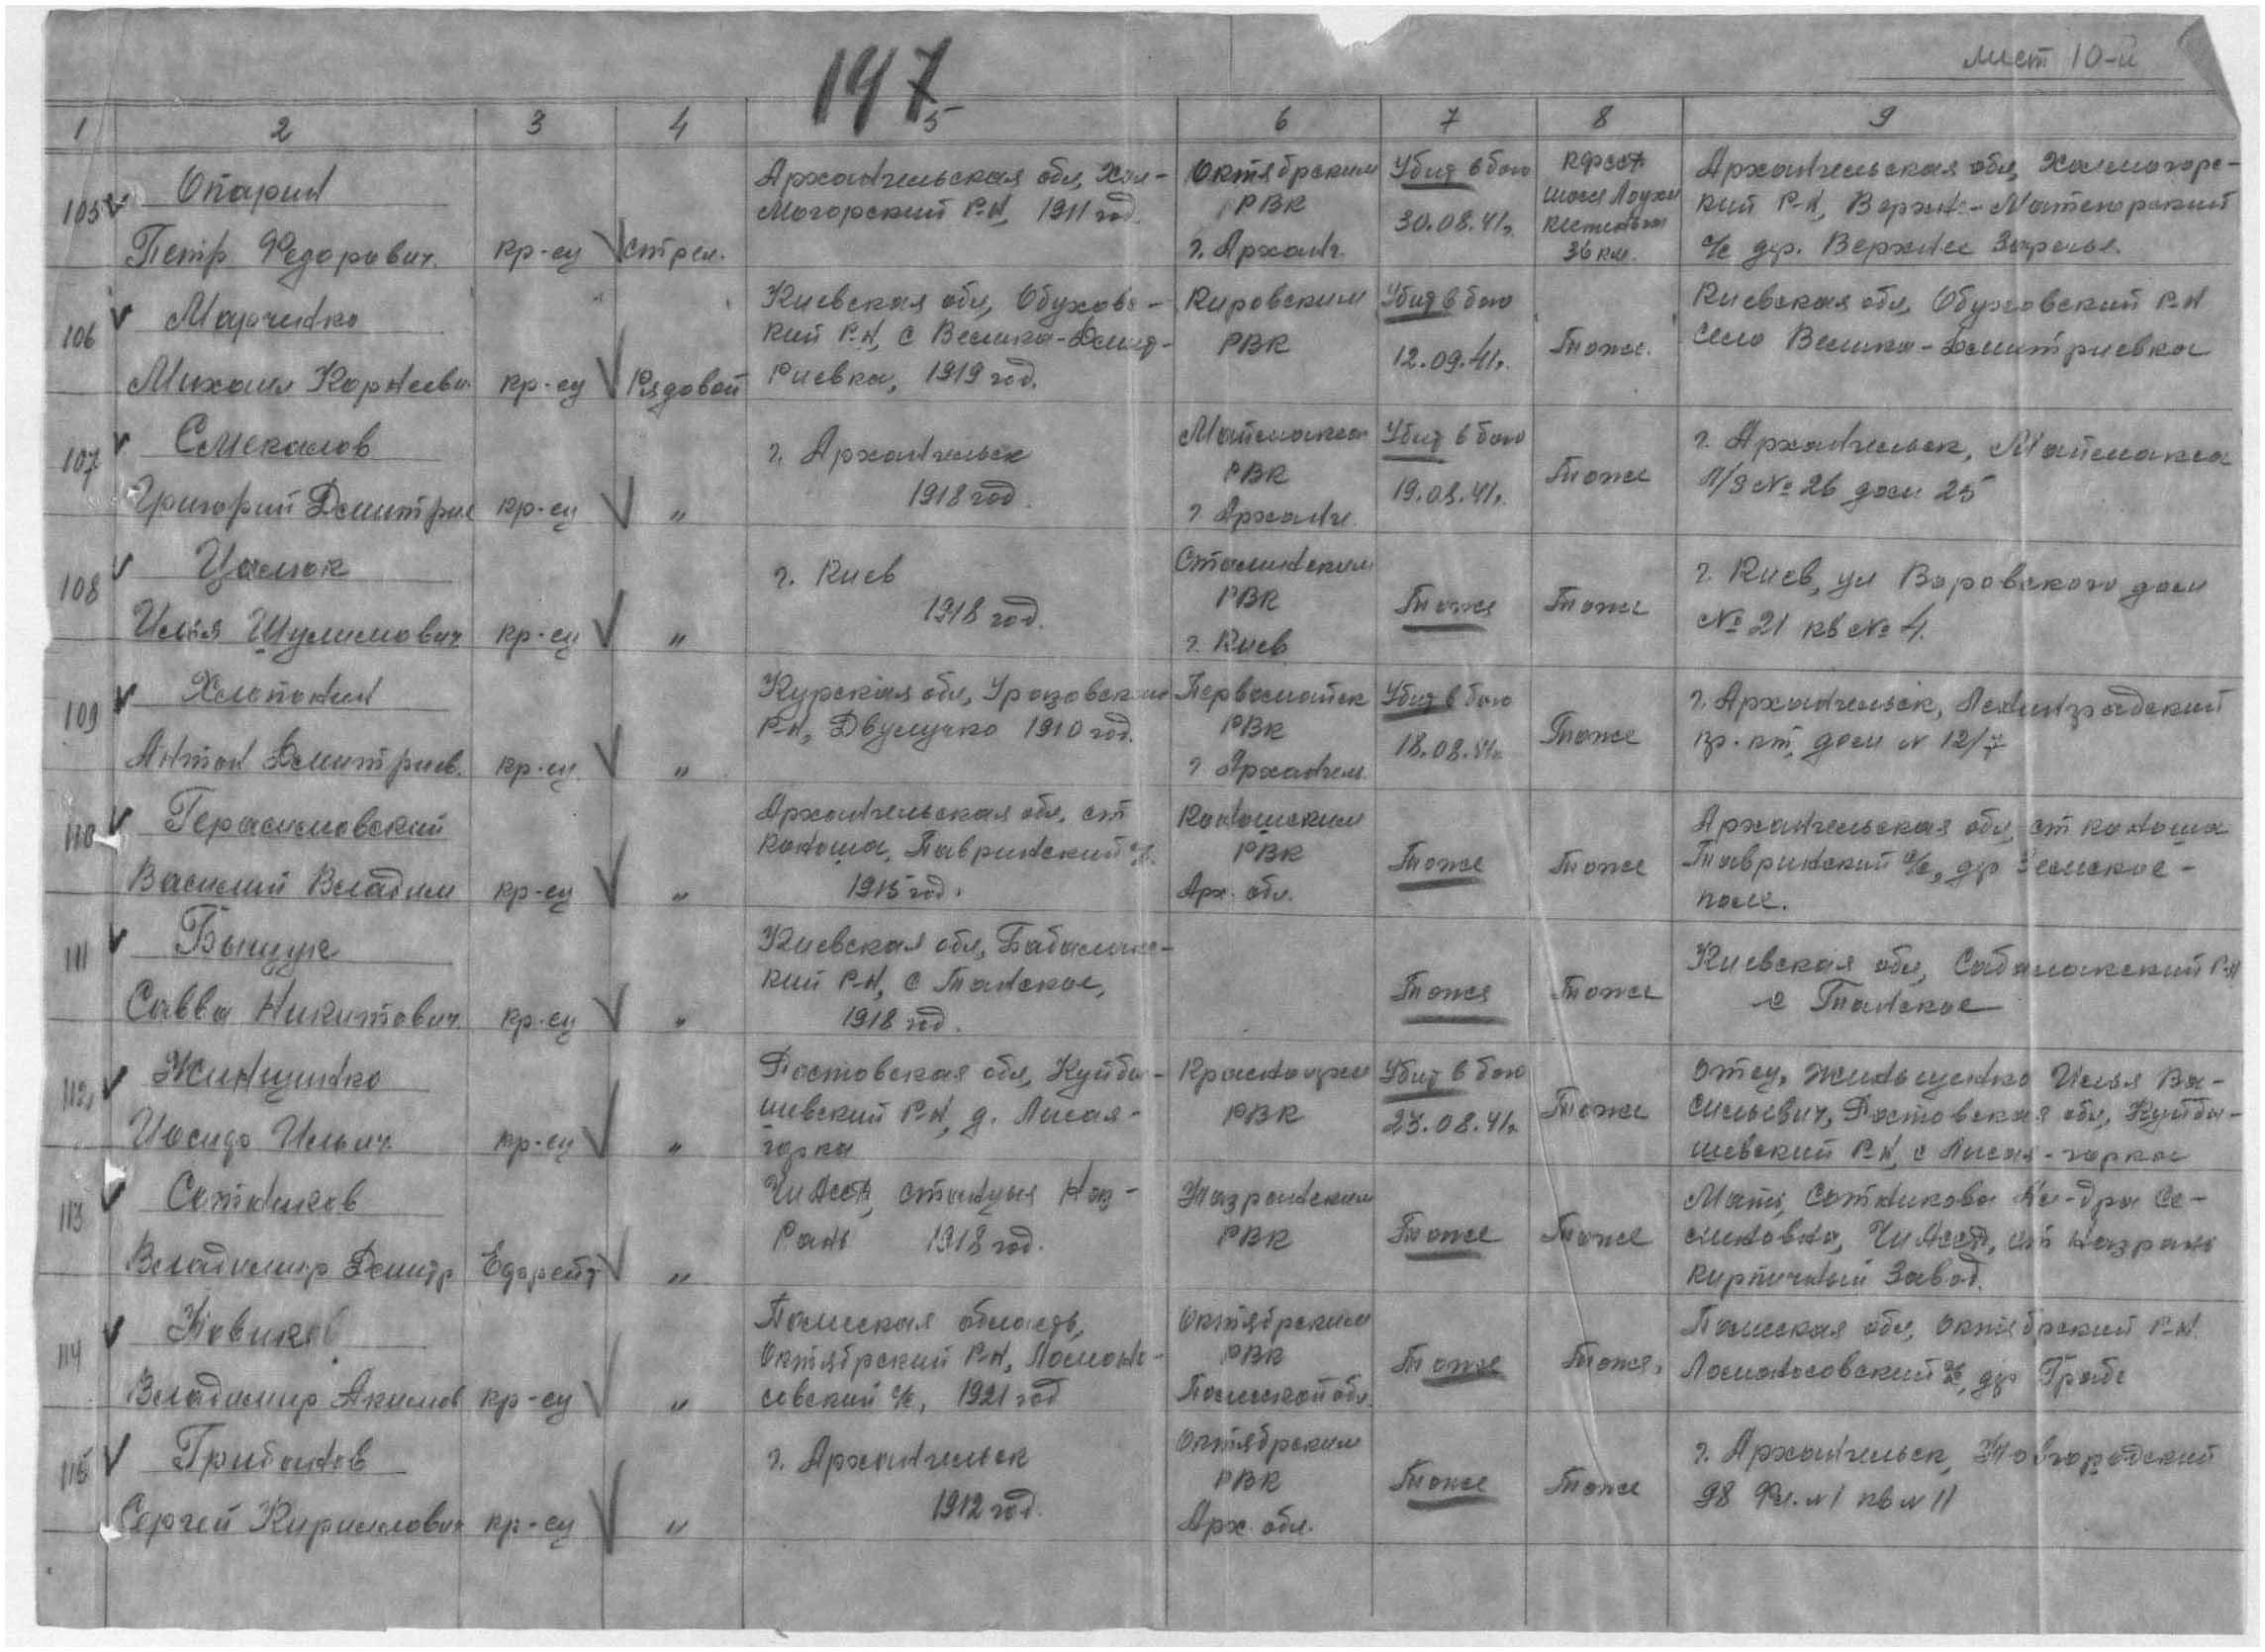 лист 10-й
147
1 2 3 4 5 6 7 8 9
105 Опарин
Петр Федорович кр-ец стрел.
Архангельская обл, Хол-
могорский Р-Н, 1911 год.
Октябрьским
РВК
г. Арханг.
Убит в бою
30.08.41г.
КФССР
шоссе Лоухи
Кестеньга
36 км.
Архангельская обл, Холмогорс-
кий Р-Н, Верхне-Матегорский
с/с дер. Верхнее Заречье.
106 Марченко
Михаил Корнеевич кр-ец Рядовой
Киевская обл, Обуховс-
кий Р-Н, с Велика-Дмит-
риевка, 1919 год.
Кировским
РВК
Убит в бою
12.09.41г.
Тоже.
Киевская обл, Обуховский Р-Н
село Велико-Дмитриевка
107 Смекалов
Григорий Дмитрие кр-ец "
г. Архангельск
1918 год.
Маймакса
РВК
г. Арханге.
Убит в бою
19.08.41г.
Тоже
г. Архангельск, Маймакса
Л/З № 26 дом 25
108 Цалюк
Илья Шулимович кр-ец "
г. Киев
1918 год.
Сталинским
РВК
г. Киев
Тоже
Тоже
г. Киев, ул Воровского дом
№ 21 кв № 4.
109 Хлопонин
Антон Дмитриев. кр-ец. "
Курская обл, Уразовском
Р-Н, Двулучко 1910 год.
Первомайск
РВК
г. Архангел.
Убит в бою
18.08.41г.
Тоже
г. Архангельск, Ленинградский
пр. кт, дом № 12/7
110 Герасимовский
Василий Владим кр-ец "
Архангельская обл, ст
Коноша, Тавринский с/с.
1915 год.
Коношским
РВК
Арх. обл.
Тоже
Тоже
Архангельская обл, ст Коноша
Тавринский с/с, др Земское-
поле.
111 Быщук
Савва Никитович кр-ец "
Киевская обл, Бабанлнс-
кий Р-Н, с Танское,
1918 год.
Тоже
Тоже
Киевская обл, Сабанакский Р-Н
с Танское
112 Жинщенко
Иосиф Ильич. кр-ец "
Ростовская обл, Куйбы-
шевский Р-Н, д. Лысая-
горка
РВК
Убит в бою
23.08.41г.
Тоже
отец, Илья Ва-
сильевич, Ростовская обл, Куйбы-
шевский Р-Н, с Лысая-горка
113 Сотников
Владимир Дмитр Ефрейт "
ЧИАССР, станция Наз-
рань 1918 год.
Назранским
РВК
Тоже
Тоже
Мать, Сотникова Ал-дра Се-
меновна, ЧИАССР, ст Назрань
кирпичный Завод.
114 Новиков
Владимир Акимов кр-ец "
Полесская область,
Октябрский Р-Н, Ломоно-
совский с/с, 1921 год
Октябрским
РВК
Полесской обл.
Тоже
Тоже.
Полесская обл, Октябрский Р-Н.
Ломоносовский с/с, дрГрабе
115 Грибанов
Сергей Кириллович кр-ец "
г. Архангельск
1912 год.
Октябрским
РВК
Арх. обл.
Тоже
Тоже
г. Архангельск, Новгородский
98 Фл. №1 кв № 11